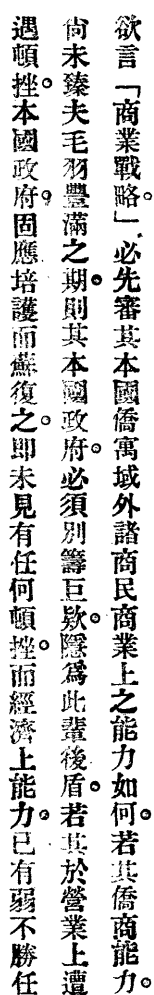 欲言「商業戰略」必先審其本國僑寓域外諸商民商業上之能力如何。若其僑商能力。
尙未臻夫毛羽豐滿之期。則其本國政府。必須別籌巨欵。隱爲此輩後盾。若其於營業上遭
遇頓挫。本國政府。固應培護而蘇復之。卽未見有任何頓挫。而經濟上能力。已有弱不勝任